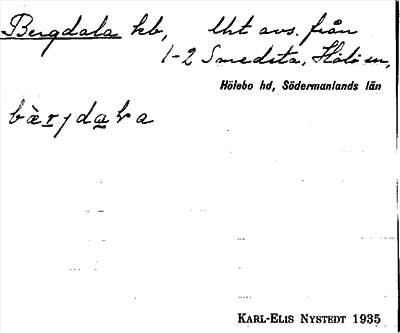 Bergdala kb, lht avs. från
1-2 Smedsta, Hölö sn,
Hölebo hd, Södermanlands län
bàrjdaka
KARL-ELIS NYSTEDT 1935